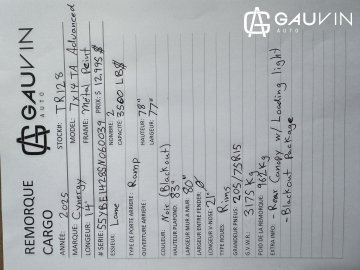 GAUVIN
AUTO
GAUVIN
AUTO
REMORQUE
CARGO
ANNÉE: 2025 STOCK#: TR128
MARQUE: Cynergy MODEL: 7x14 TA Advanced
LONGEUR: 14' FRAME: Metal Peint
# SERIE: 5SYBE1428SN060039 PRIX: $ 12,995 $
ESSIEUR: NOMBRE: 2
CAPACITÉ: 3500 LBS
TYPE DE PORTE ARRIERE: Ramp
OUVERTURE ARRIERE: HAUTEUR: 78"
LARGEUR: 77"
COULEUR: Noir (Blackout)
HAUTEUR PLAFOND: 83"
LARGEUR MUR A MUR: 80"
LARGEUR ENTRE FENDER:
LONGEUR V-NOSE: 21"
TYPE ROUES: Rims
GRANDEUR PNEUS: 205/75R15
G.V.W.R: 3175 Kg
POID DE LA REMORQUE: 962 Kg
EXTRA INFO: - Rear Canopy w/ Loading light
- Blackout Package